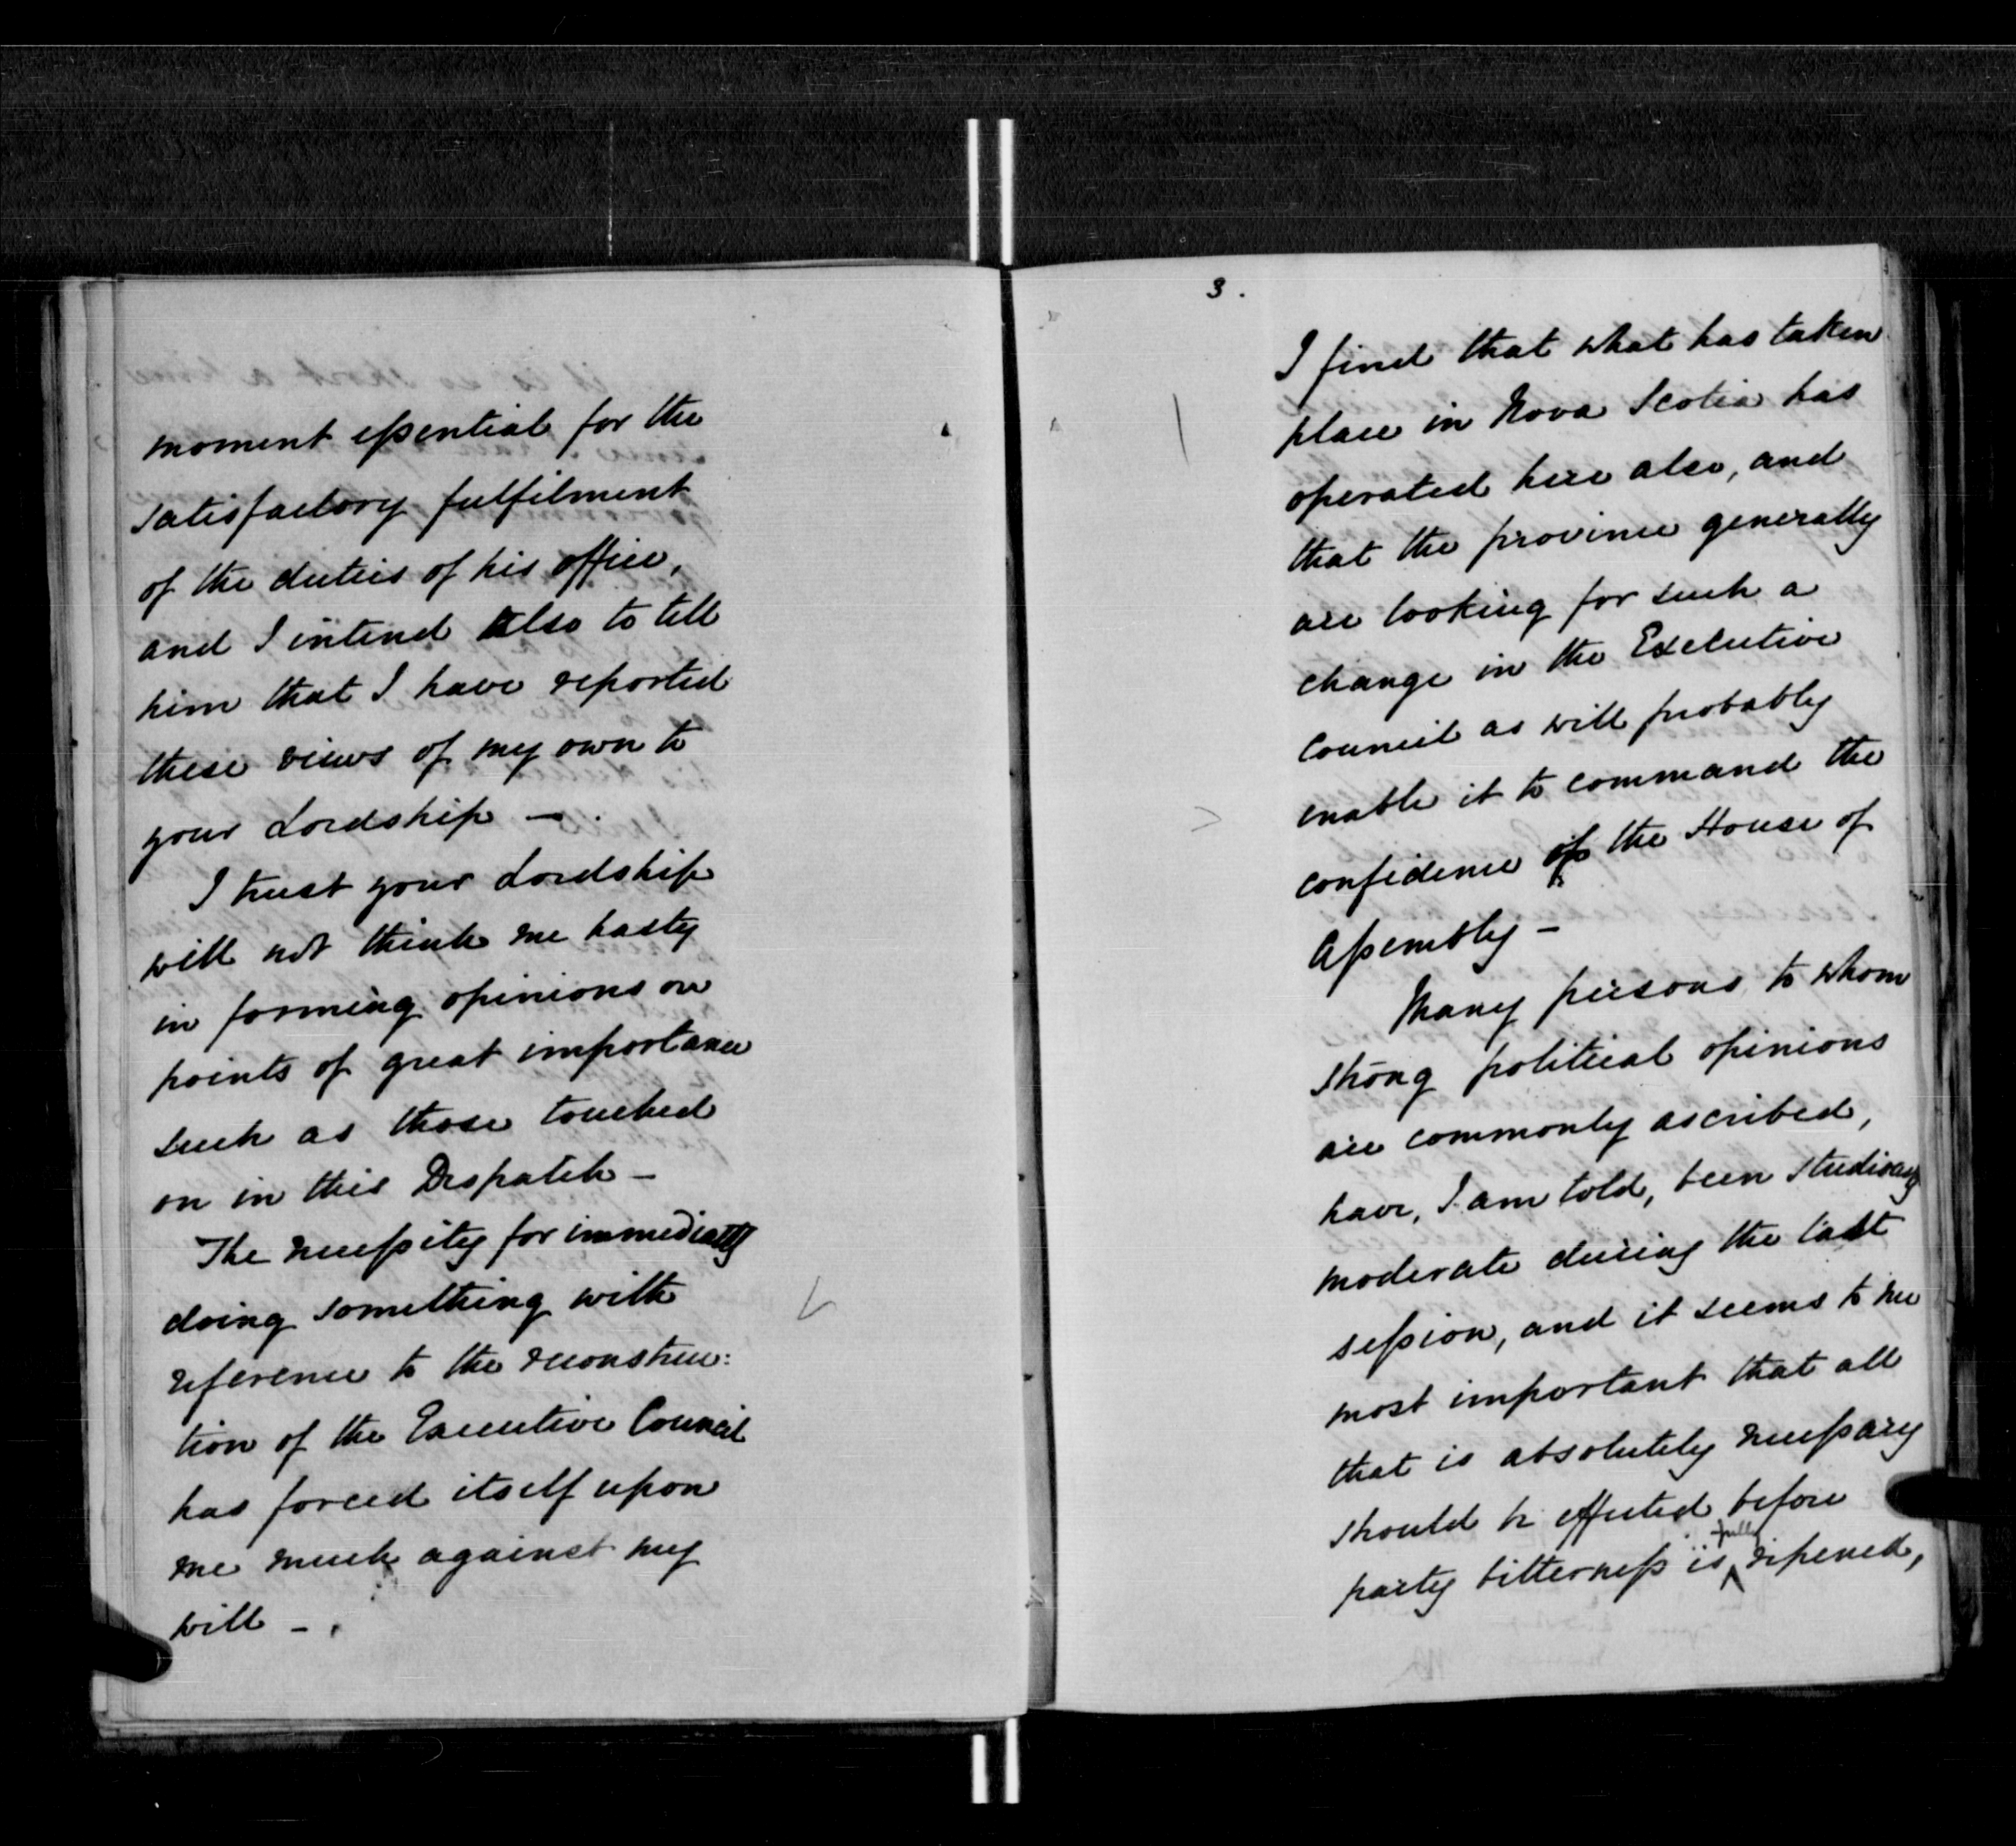 moment essential for the
satisfactory fulfilment
of the duties of his office,
and I intend also to tell
him that I have reported
these views of my own to
your Lordship —.
I trust your Lordship
will not think me hasty
in forming opinions on
points of great importance
such as those touched
on in this Despatch —
The necessity for immediately
doing something with
reference to the reconstruc:
tion of the Executive Council
has forced itself upon
me much against my
will —.
3.
I find that what has taken
place in Nova Scotia has
operated here also, and
that the province generally
are looking for such a
change in the Executive
Council as will probably
enable it to command the
confidence of the House of
Assembly —
Many persons to whom
strong political opinions
are commonly ascribed,
have, I am told, been studiously
moderate during the last
session, and it seems to me
most important that all
that is absolutely necessary
should be effected before
party bitterness is fully ripened,